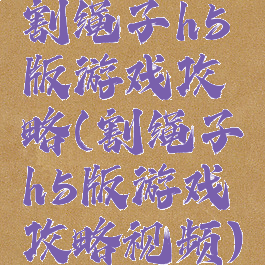 割绳子h5
版游戏攻
略(割绳子
h5版游戏
攻略视频)